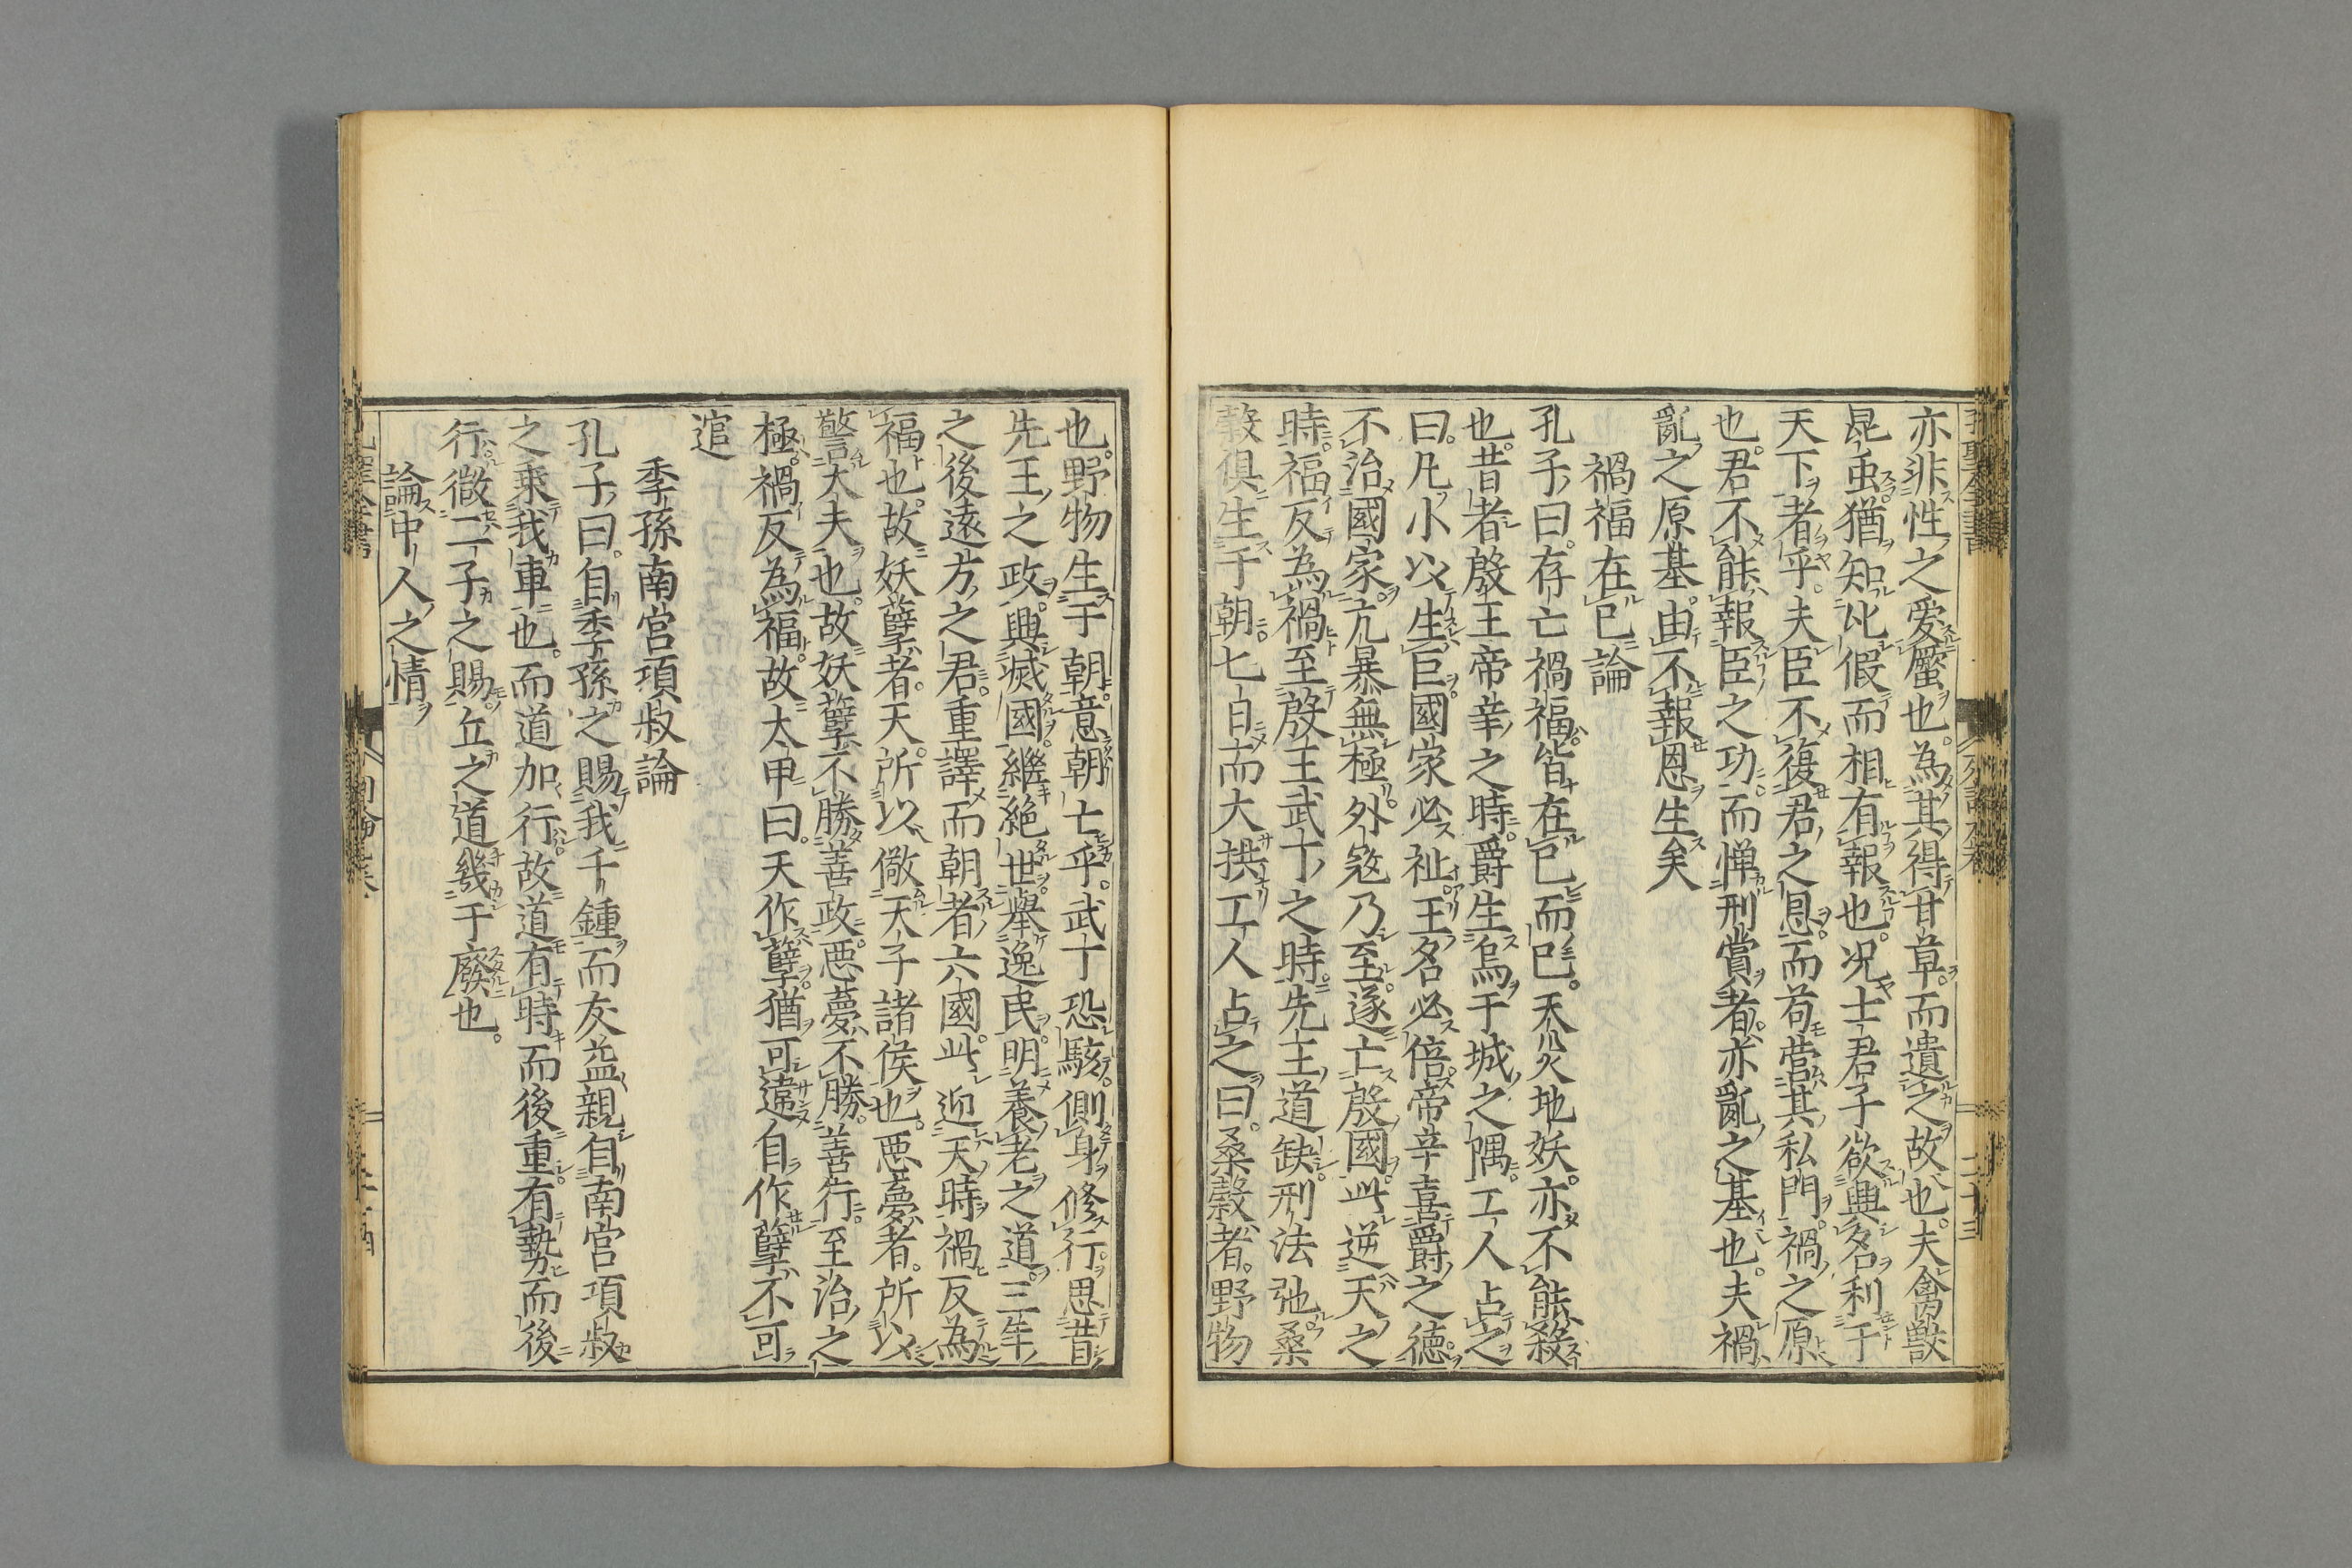 亦非性之愛蟨也。為其得甘草。而遺之故也。夫禽獸
昆虫猶知比假而相有報也。况士君子欲興名利于
天下者乎。夫臣不復君之恩。而苟营其私門。禍之原
也。君不能報臣之功。而惮刑賞者。亦亂之基也。夫禍
亂之原基。由不報恩生矣
禍福在已論
孔子曰。存亡禍福。皆在已而已。天灾地妖。亦不能殺
也。昔者殷王帝辛之時。爵生烏于城之隅。工人占之
曰。凡小以生巨。國家必祉。王名必倍。帝辛喜爵之德。
不治國家。亢暴無極。外冦乃至。遂亡殷國。此逆天之
時。福反為禍。至殷王武丁之時。先王道缺。刑法弛。桑
穀俱生于朝。七日而大拱。工人占之曰。桑穀者。野物
也。野物生于朝。意朝亡乎。武丁恐駭。側身修行。思昔
先王之政。興滅國。繼絶世。舉逸民。明養老之道。三年
之後。遠方之君。重譯而朝者。六國。此迎天時。禍反為
福也。故妖孽者。天所以儆天子諸侯也。悪夢者。所以
警大夫也。故妖孽不勝善政。悪夢不勝善行。至治之
極。禍反為福。故太甲曰。天作孽。猶可違。自作孽。不可
逭
季孫南宮項叔論
孔子曰。自季孫之賜我千鍾。而友益親。自南宮項叔
之乘我車也。而道加行。故道有時而後重。有勢而後
行。微二子之賜。丘之道幾于廢也。
論中人之情